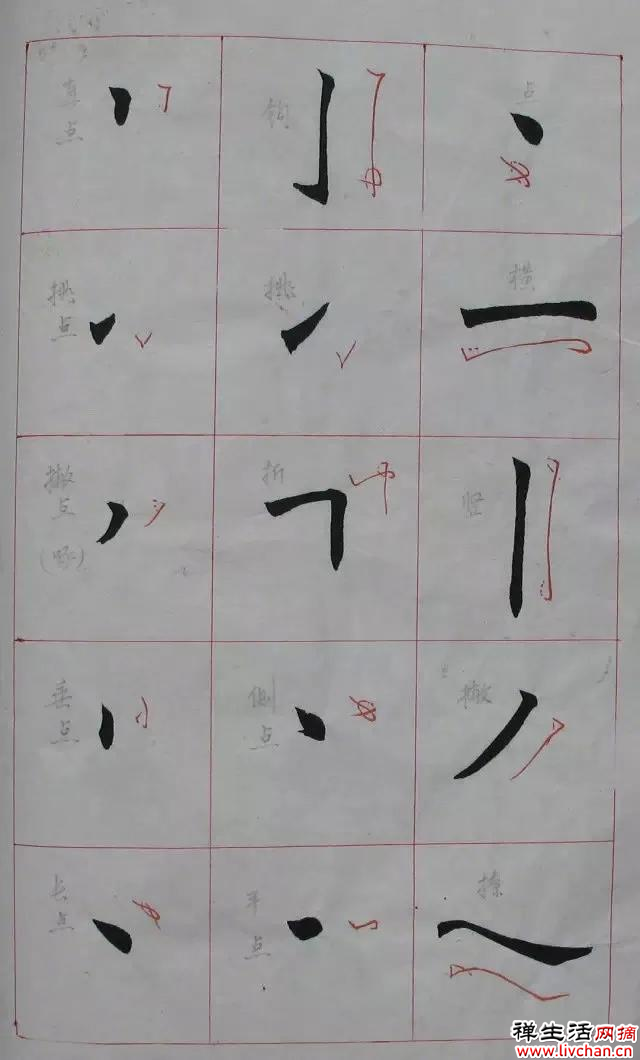 点
横
竖
撇
捺
钩
挑
折
侧点
平点
直点
挑点
撇点
(啄)
垂点
长点
禅生活网摘
www.livchan.cn